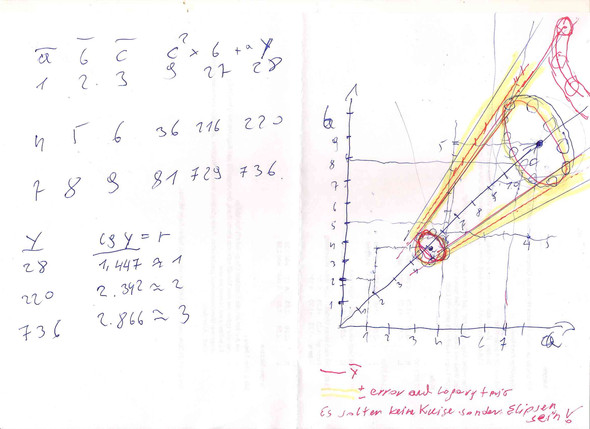 a̅ b̅ c̅ c² × b + a Y
1 2. 3 9 27 28
4 5 6 36 216 220
7 8 9 81 729 736.
Y lg Y = r
28 1,447 ≈ 1
220 2.342 ≈ 2
736 2.866 ≈ 3
9
8
7
6
5
4
3
2
1
1 2 3 4 5 6 7
5
4 5
7 8 9 10
— Y̅
± error auf logarytmis
Es sollten keine Kreise sondern Elipsen
sein!